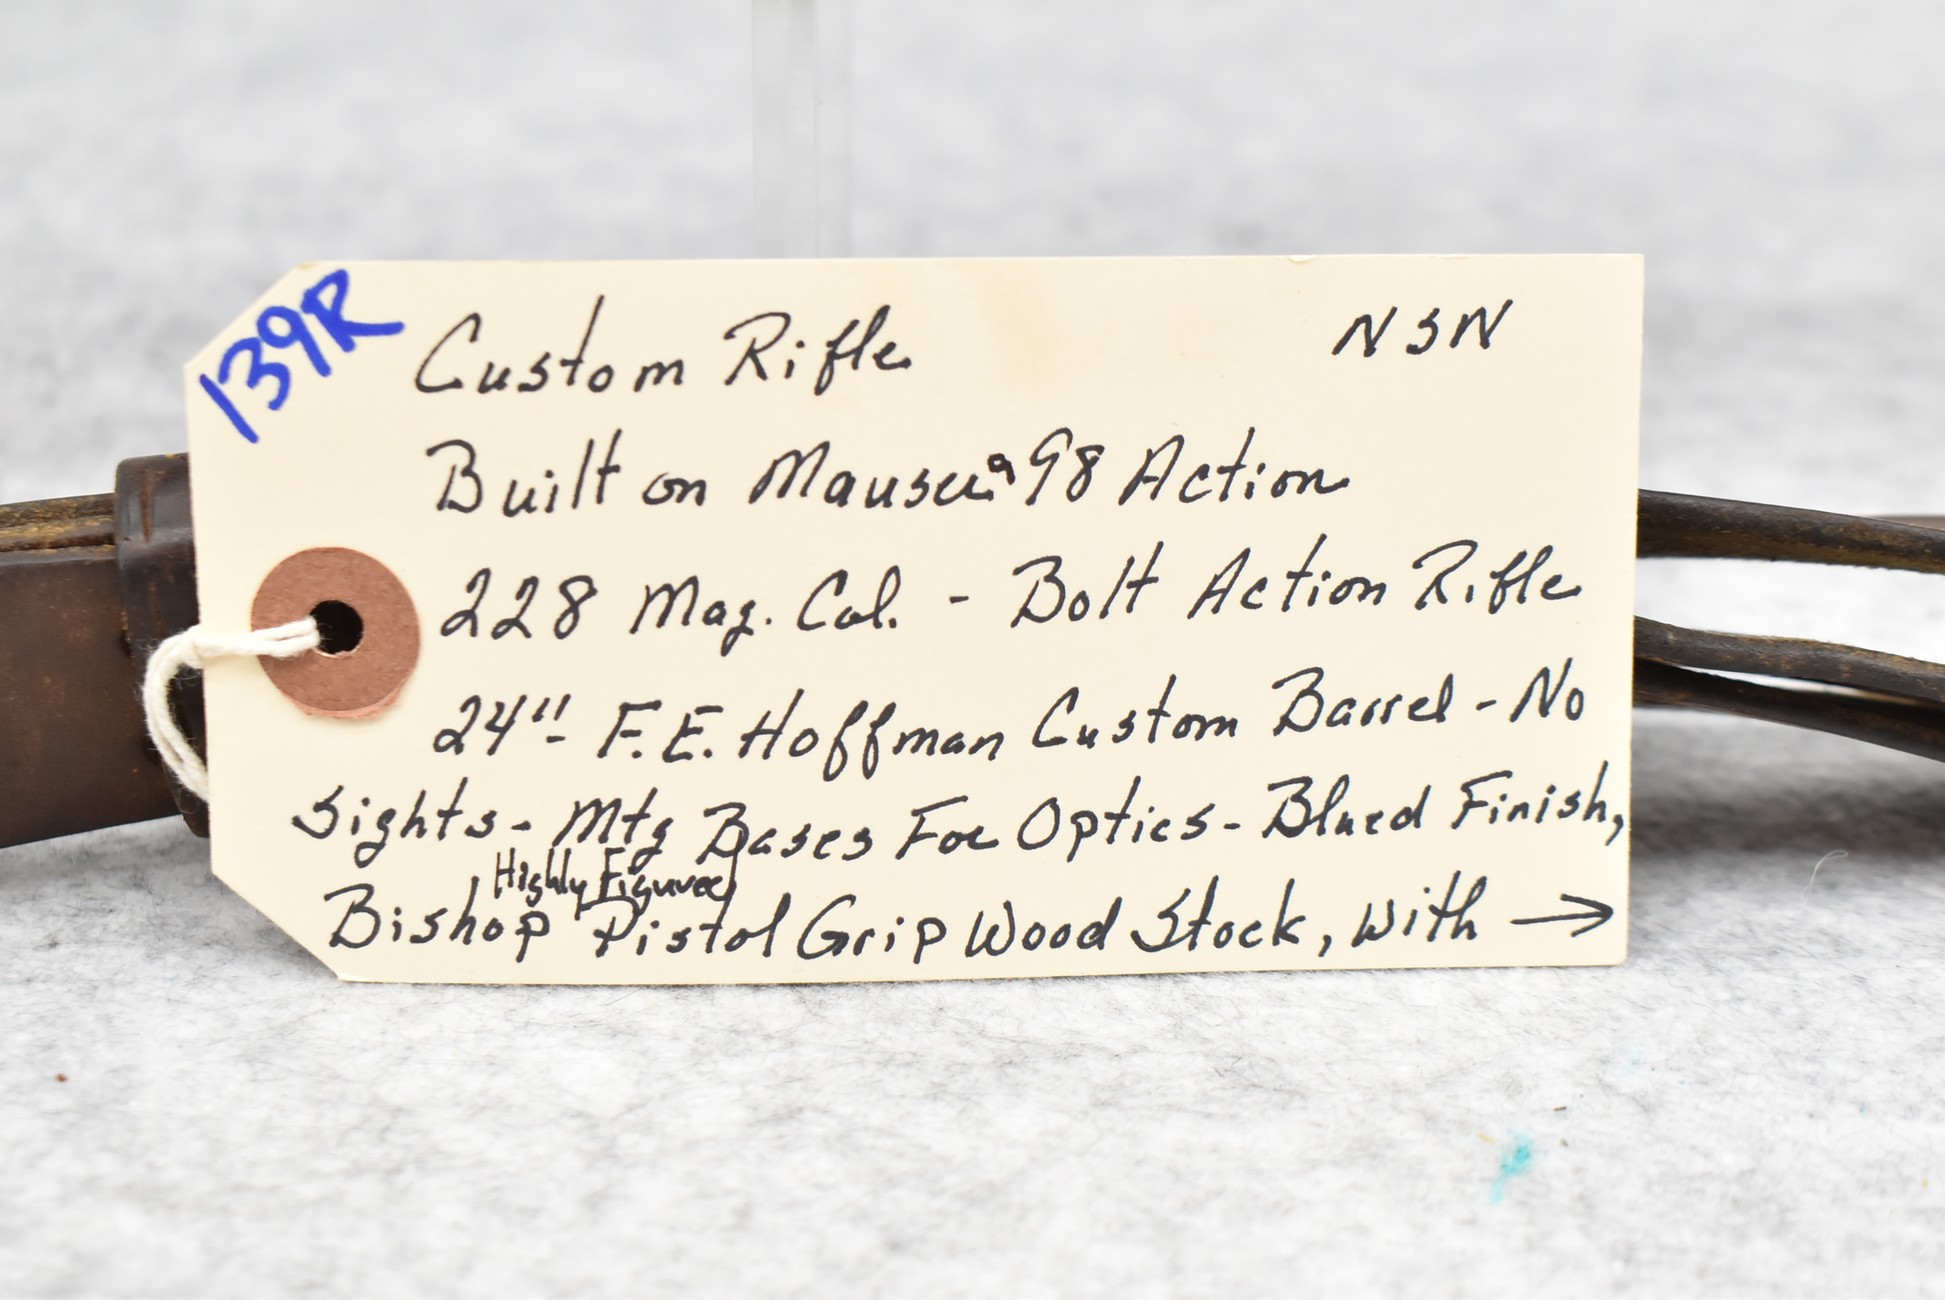 139R
Custom Rifle NSN
Built on Mauser 98 Action
228 Mag. Cal. - Bolt Action Rifle
24" - F.E. Hoffman Custom Barrel - No
Sights - Mtg Bases For Optics - Blued Finish,
Highly Figured
Bishop Pistol Grip Wood Stock, with →